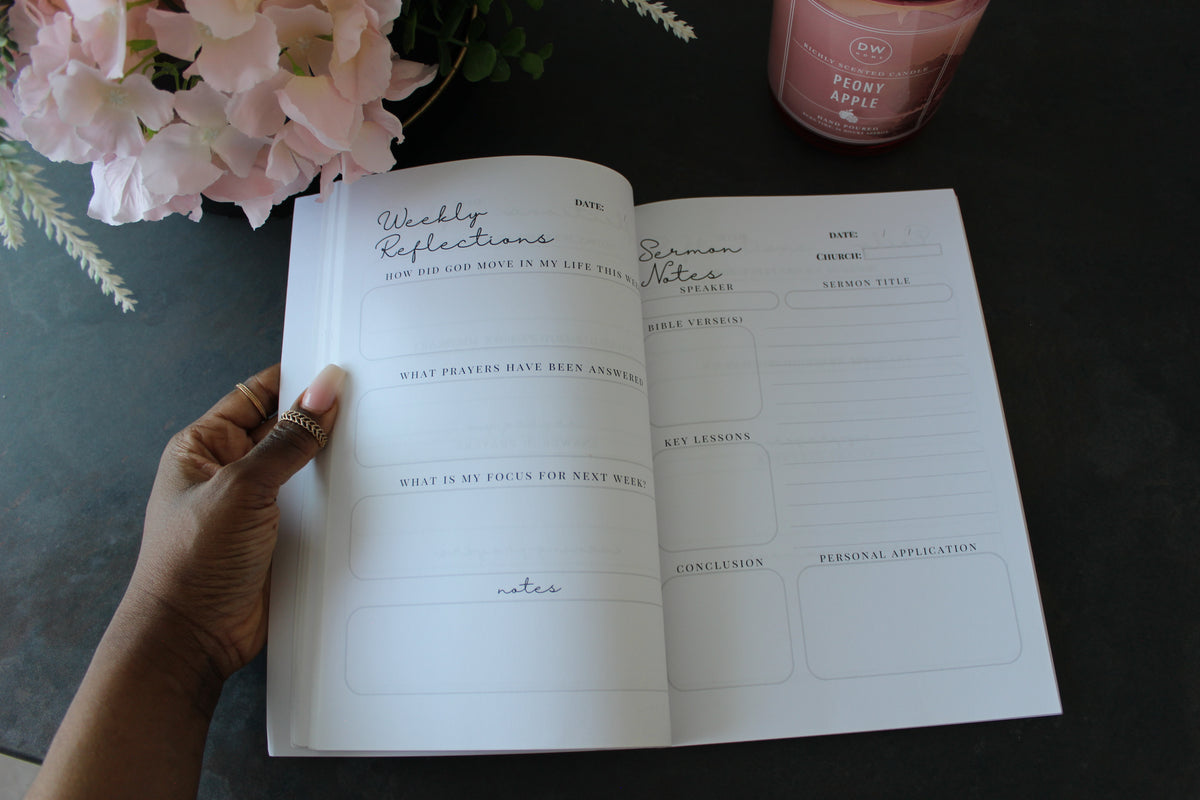 DW
HOME
RICHLY SCENTED CANDLE
PEONY
APPLE
HAND POURED
Weekly
Reflections
DATE:
HOW DID GOD MOVE IN MY LIFE THIS WE
WHAT PRAYERS HAVE BEEN ANSWERED
WHAT IS MY FOCUS FOR NEXT WEEK?
notes
Sermon
Notes
DATE: / /
CHURCH:
SPEAKER
SERMON TITLE
BIBLE VERSE(S)
KEY LESSONS
CONCLUSION
PERSONAL APPLICATION